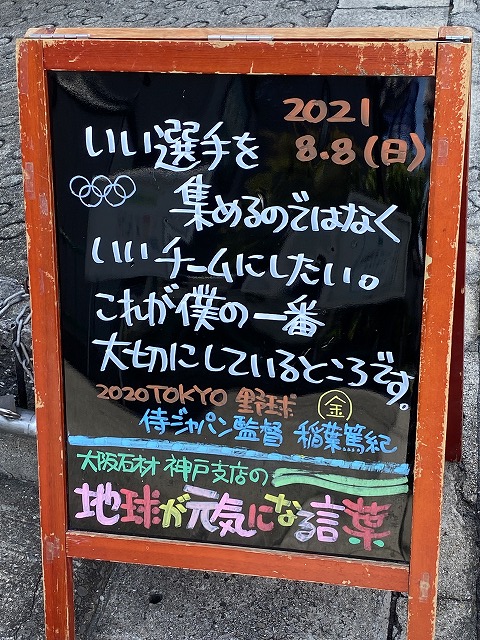 2021
8.8(日)
いい選手を
集めるのではなく
いいチームにしたい。
これが僕の一番
大切にしているところです。
2020TOKYO 野球 金
侍ジャパン監督 稲葉篤紀
大阪石材 神戸支店の
地球が元気になる言葉